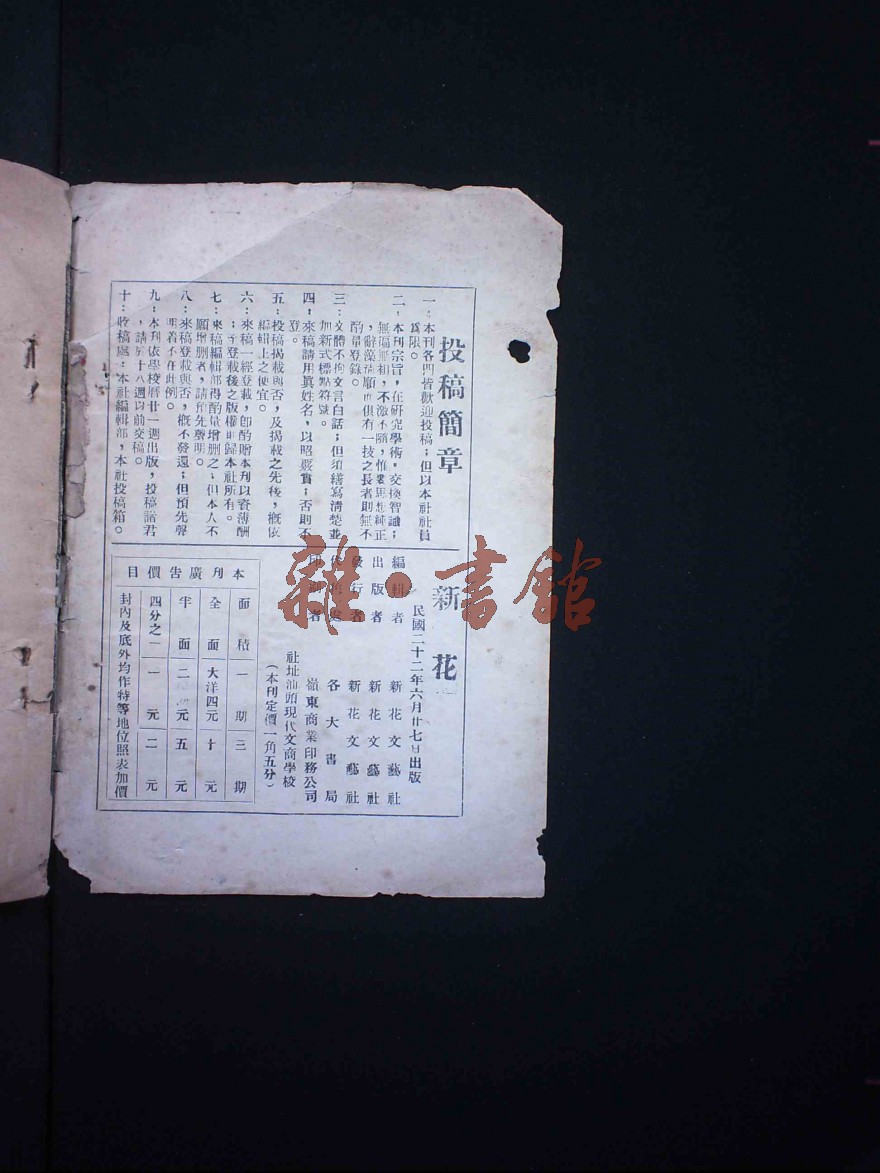 投稿簡章
一：本刊各門皆歡迎投稿；但以本社社員
為限。
二：本刊宗旨，在研究學術，交換智識；
無偏無頗，不激不隨，惟要思想純正
，辭藻清順而俱有一技之長者則無不
酌量登錄。
三：文體不拘文言白話；但須繕寫清楚並
加新式標點符號。
四：來稿請用眞姓名，以昭覈實；否則不
登。
五：投稿揭載與否，及揭載之先後，概依
編輯上之便宜。
六：來稿一經登載，卽酌贈本刊以資薄酬
；予登載後之版權卽歸本社所有。
七：來稿編輯部得酌量增删之；但本人不
願增删者，請預先聲明。
八：來稿登載與否，概不發還；但預先聲
明者不在此例。
九：本刊依學校曆廿一週出版，投稿諸君
，請於十八週以前交稿。
十：收稿處：本社編輯部，本社投稿箱。
新花
民國二十二年六月廿七日出版
編輯者 新花文藝社
出版者 新花文藝社
發行者 新花文藝社
各大書局
印刷者 嶺東商業印務公司
社址汕頭現代文商學校
（本刊定價一角五分）
本刊廣告價目
面積 一期 三期
全面 大洋四元 十元
半面 二元 五元
四分之一 一元 二元
封內及底外均作特等地位照表加價
雜·書館